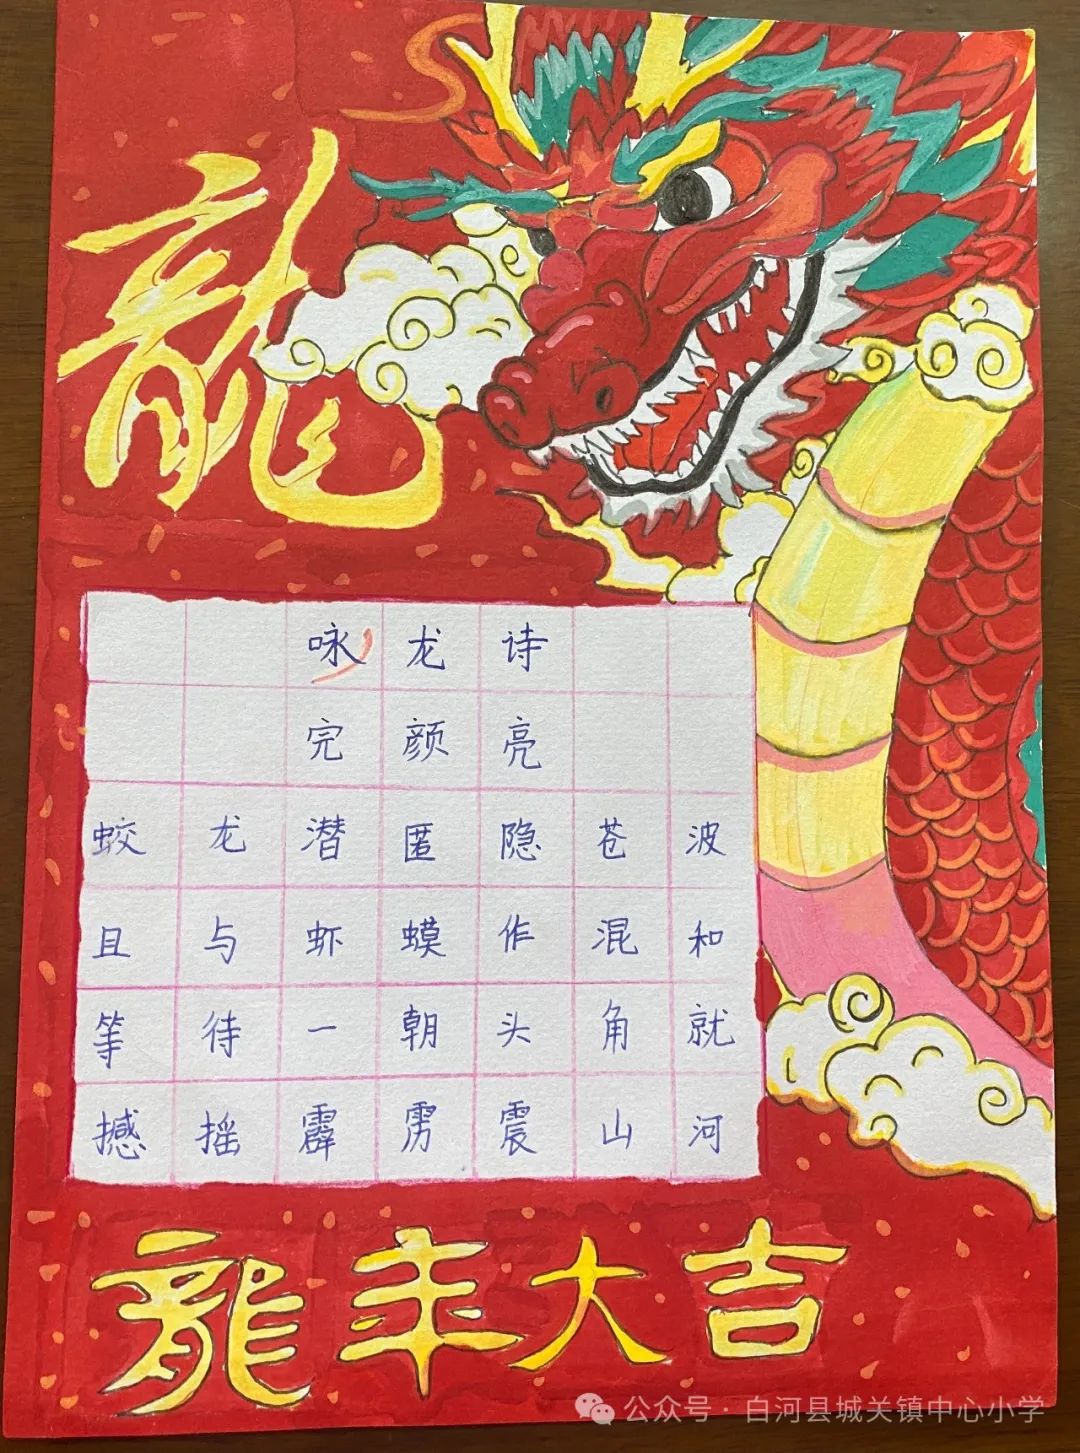 龍
咏龙诗
完颜亮
蛟龙潜匿隐苍波
且与虾蟆作混和
等待一朝头角就
撼摇霹雳震山河
龍年大吉
公众号·白河县城关镇中心小学